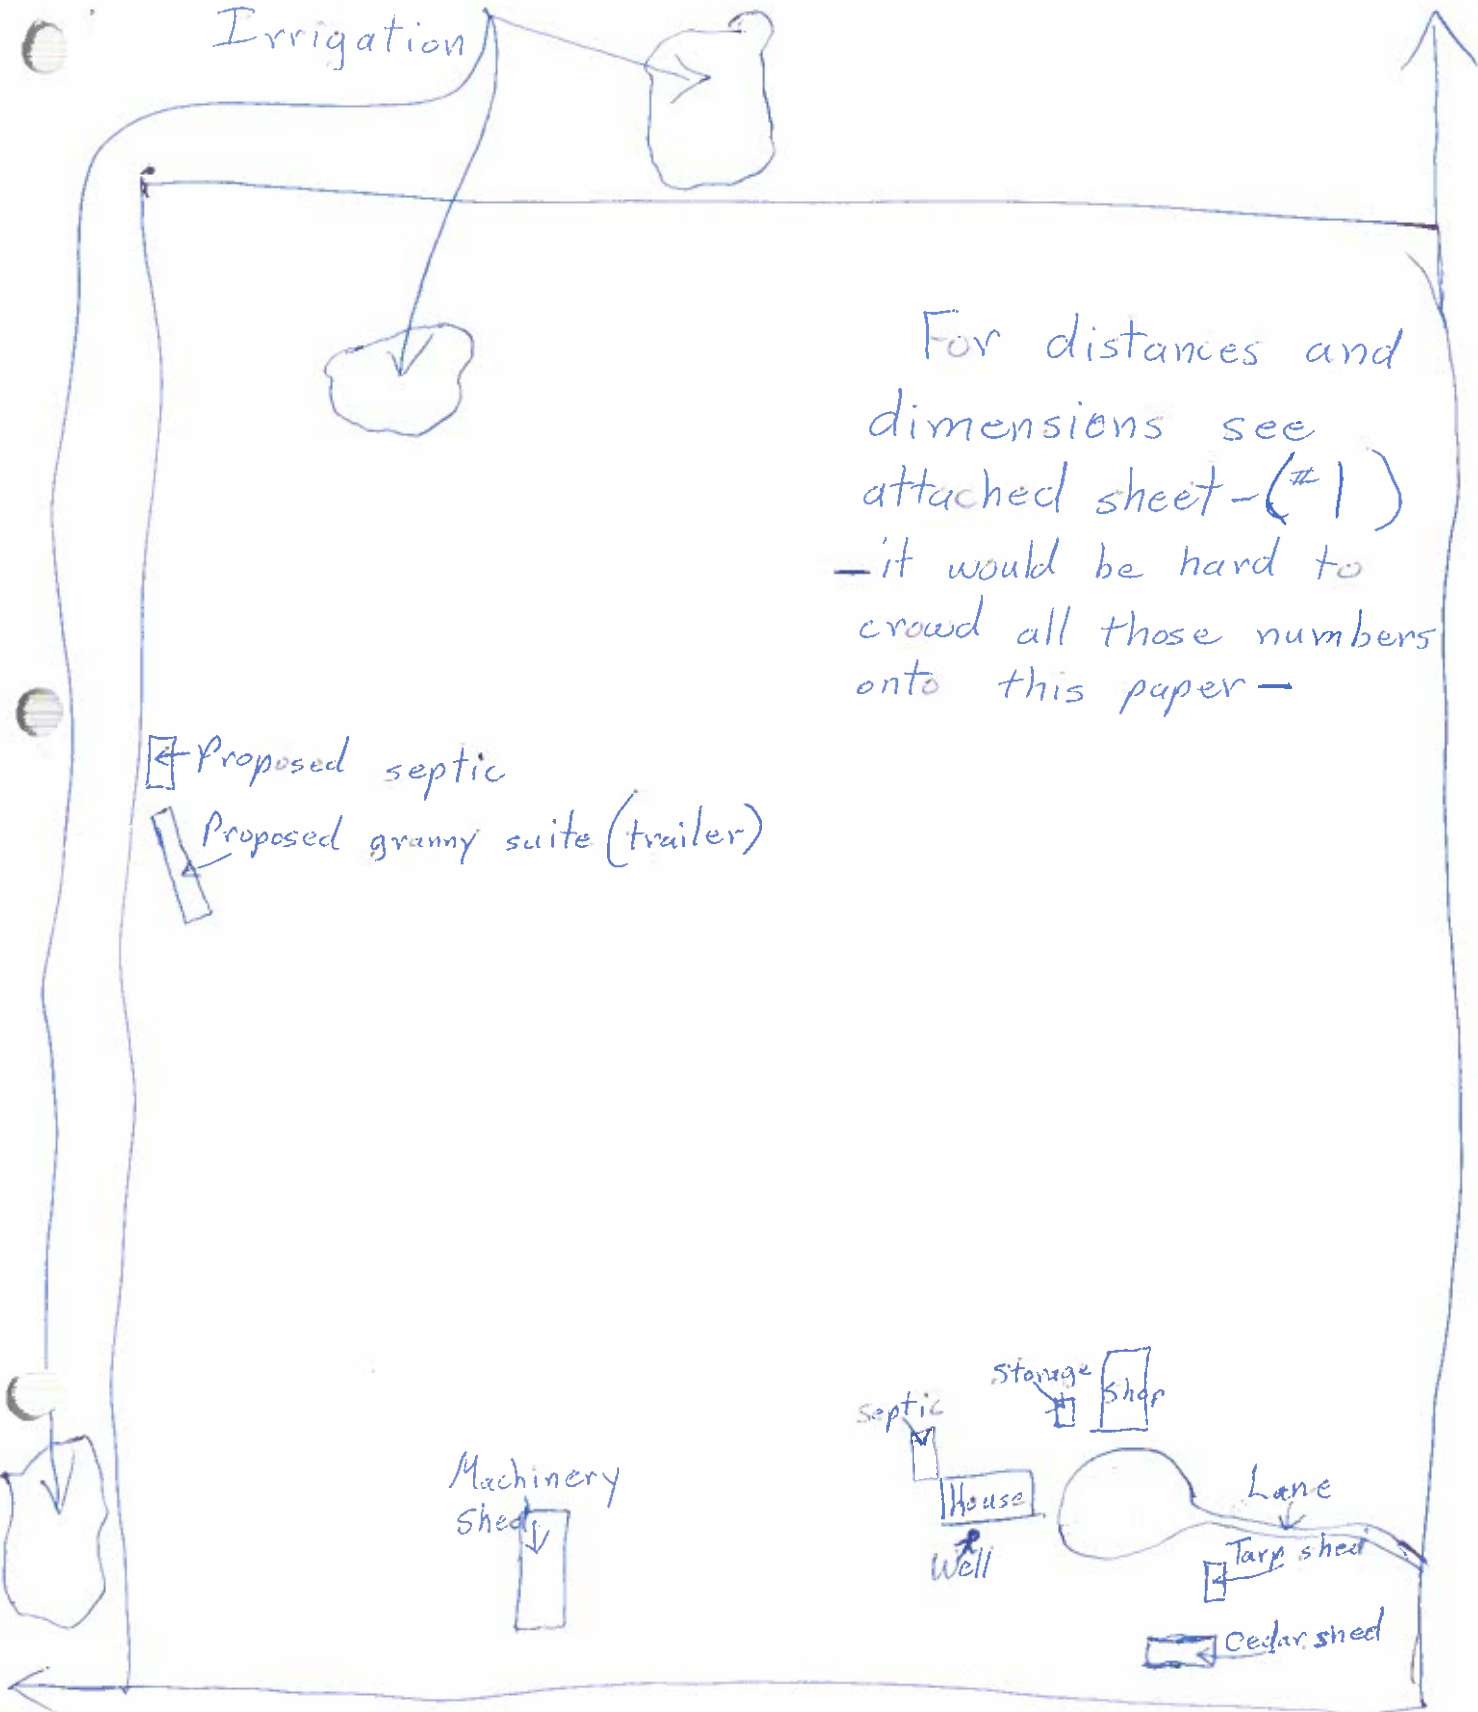 Irrigation
For distances and
dimensions see
attached sheet-(#1)
-it would be hard to
crowd all those numbers
onto this paper-
Proposed septic
Proposed granny suite (trailer)
Storage
Shop
Septic
Machinery
Shed
House
Lane
Well
Tarp shed
Cedar shed